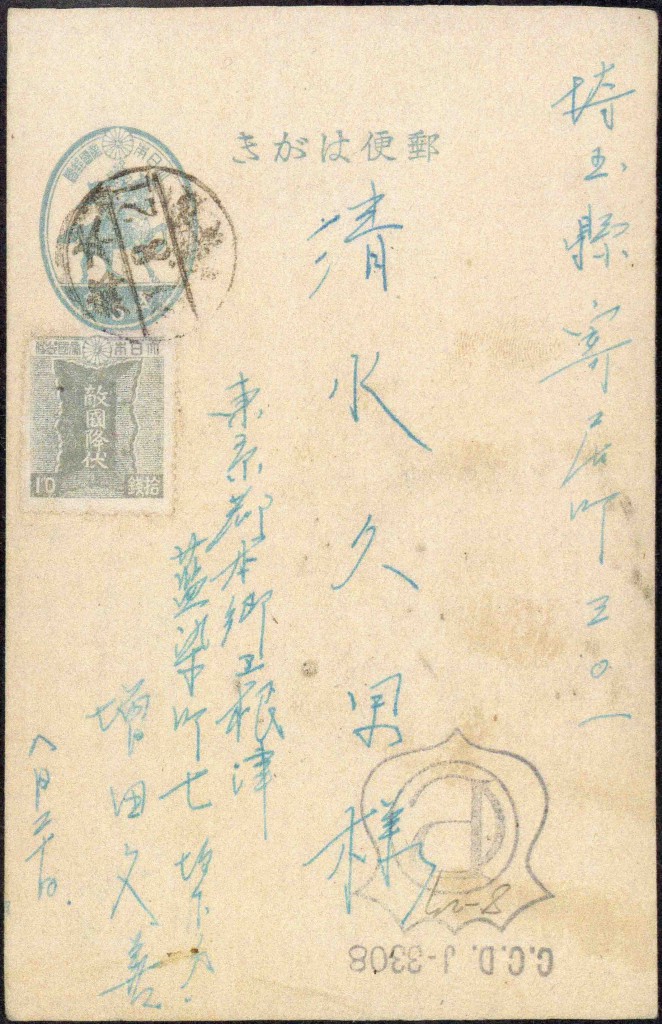 埼玉縣寄居町三〇一
郵便はがき
清水久男様
東京都本郷区根津
藍染町七
増田文善
八月二十日
大日本帝國郵便
敵國降伏
拾錢
10
21
8
C.C.D. J-3308